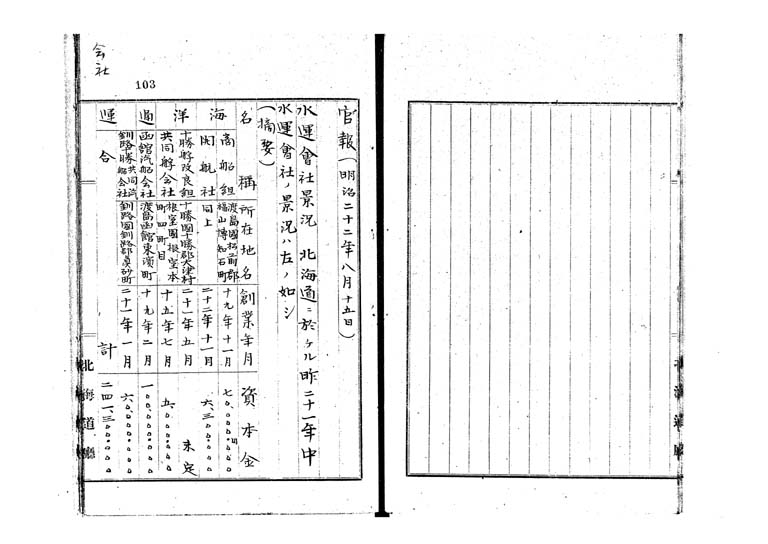 会社
103
官報(明治二十二年八月十五日)
水運會社景況 北海道ニ於ケル昨二十一年中
水運會社ノ景況ハ左ノ如シ
(摘要)
名稱 所在地名 創業年月 資本金
海 商船組 渡島國松前郡福山博知石町 十九年十一月 七〇、〇〇〇円
開航社 同上 二十二年十一月 六、三〇〇、〇〇
洋 十勝艀改良組 十勝國十勝郡大津村 二十一年五月 未定
共同艀会社 根室國根室本町四町目 十五年七月 五、〇〇〇、〇〇〇
通 函館汽船会社 渡島函館東濱町 十九年二月 一〇〇、〇〇〇、〇〇〇
釧路十勝共同汽船会社 釧路國釧路郡真砂町 二十一年一月 六〇、〇〇〇、〇〇〇
運 合計 二四一、三〇〇、〇〇〇
北海道廳